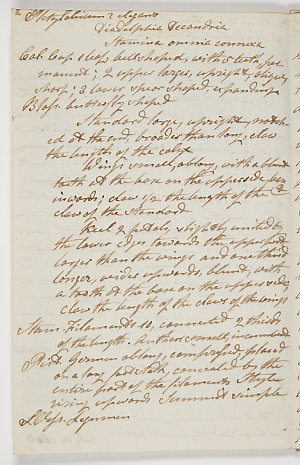 Platylobium 2 elegans
Diadelphia Decandria
Stamina omnia connexa
Cal. Cup 1 leaf, bell shaped, with 5 teeth, per-
manent; 2 upper larger, upright,
sharp; 3 lower spear shaped, expanding
Bloss. butterfly shaped
Standard large, upright, notch-
ed at the end, broader than long, claw
the length of the calyx
Wings small, oblong, with a blunt
tooth at the base on the upper side
inwards; claw 1/2 the length of the
claw of the Standard
Keel 2 petals, slightly united by
the lower edge towards the upper part
larger than the wings and one third
longer, wider upwards, blunt, with
a tooth at the base on the upper side,
claw the length of the claws of the wings
Stam. Filaments 10, connected 2 thirds
of the length. Anthers small, incumbent
Pist. Germen oblong, compressed, placed
on a long pedestal, concealed by the
entire part of the filaments Style
rising upwards Summit simple
S. Vess. Legumen